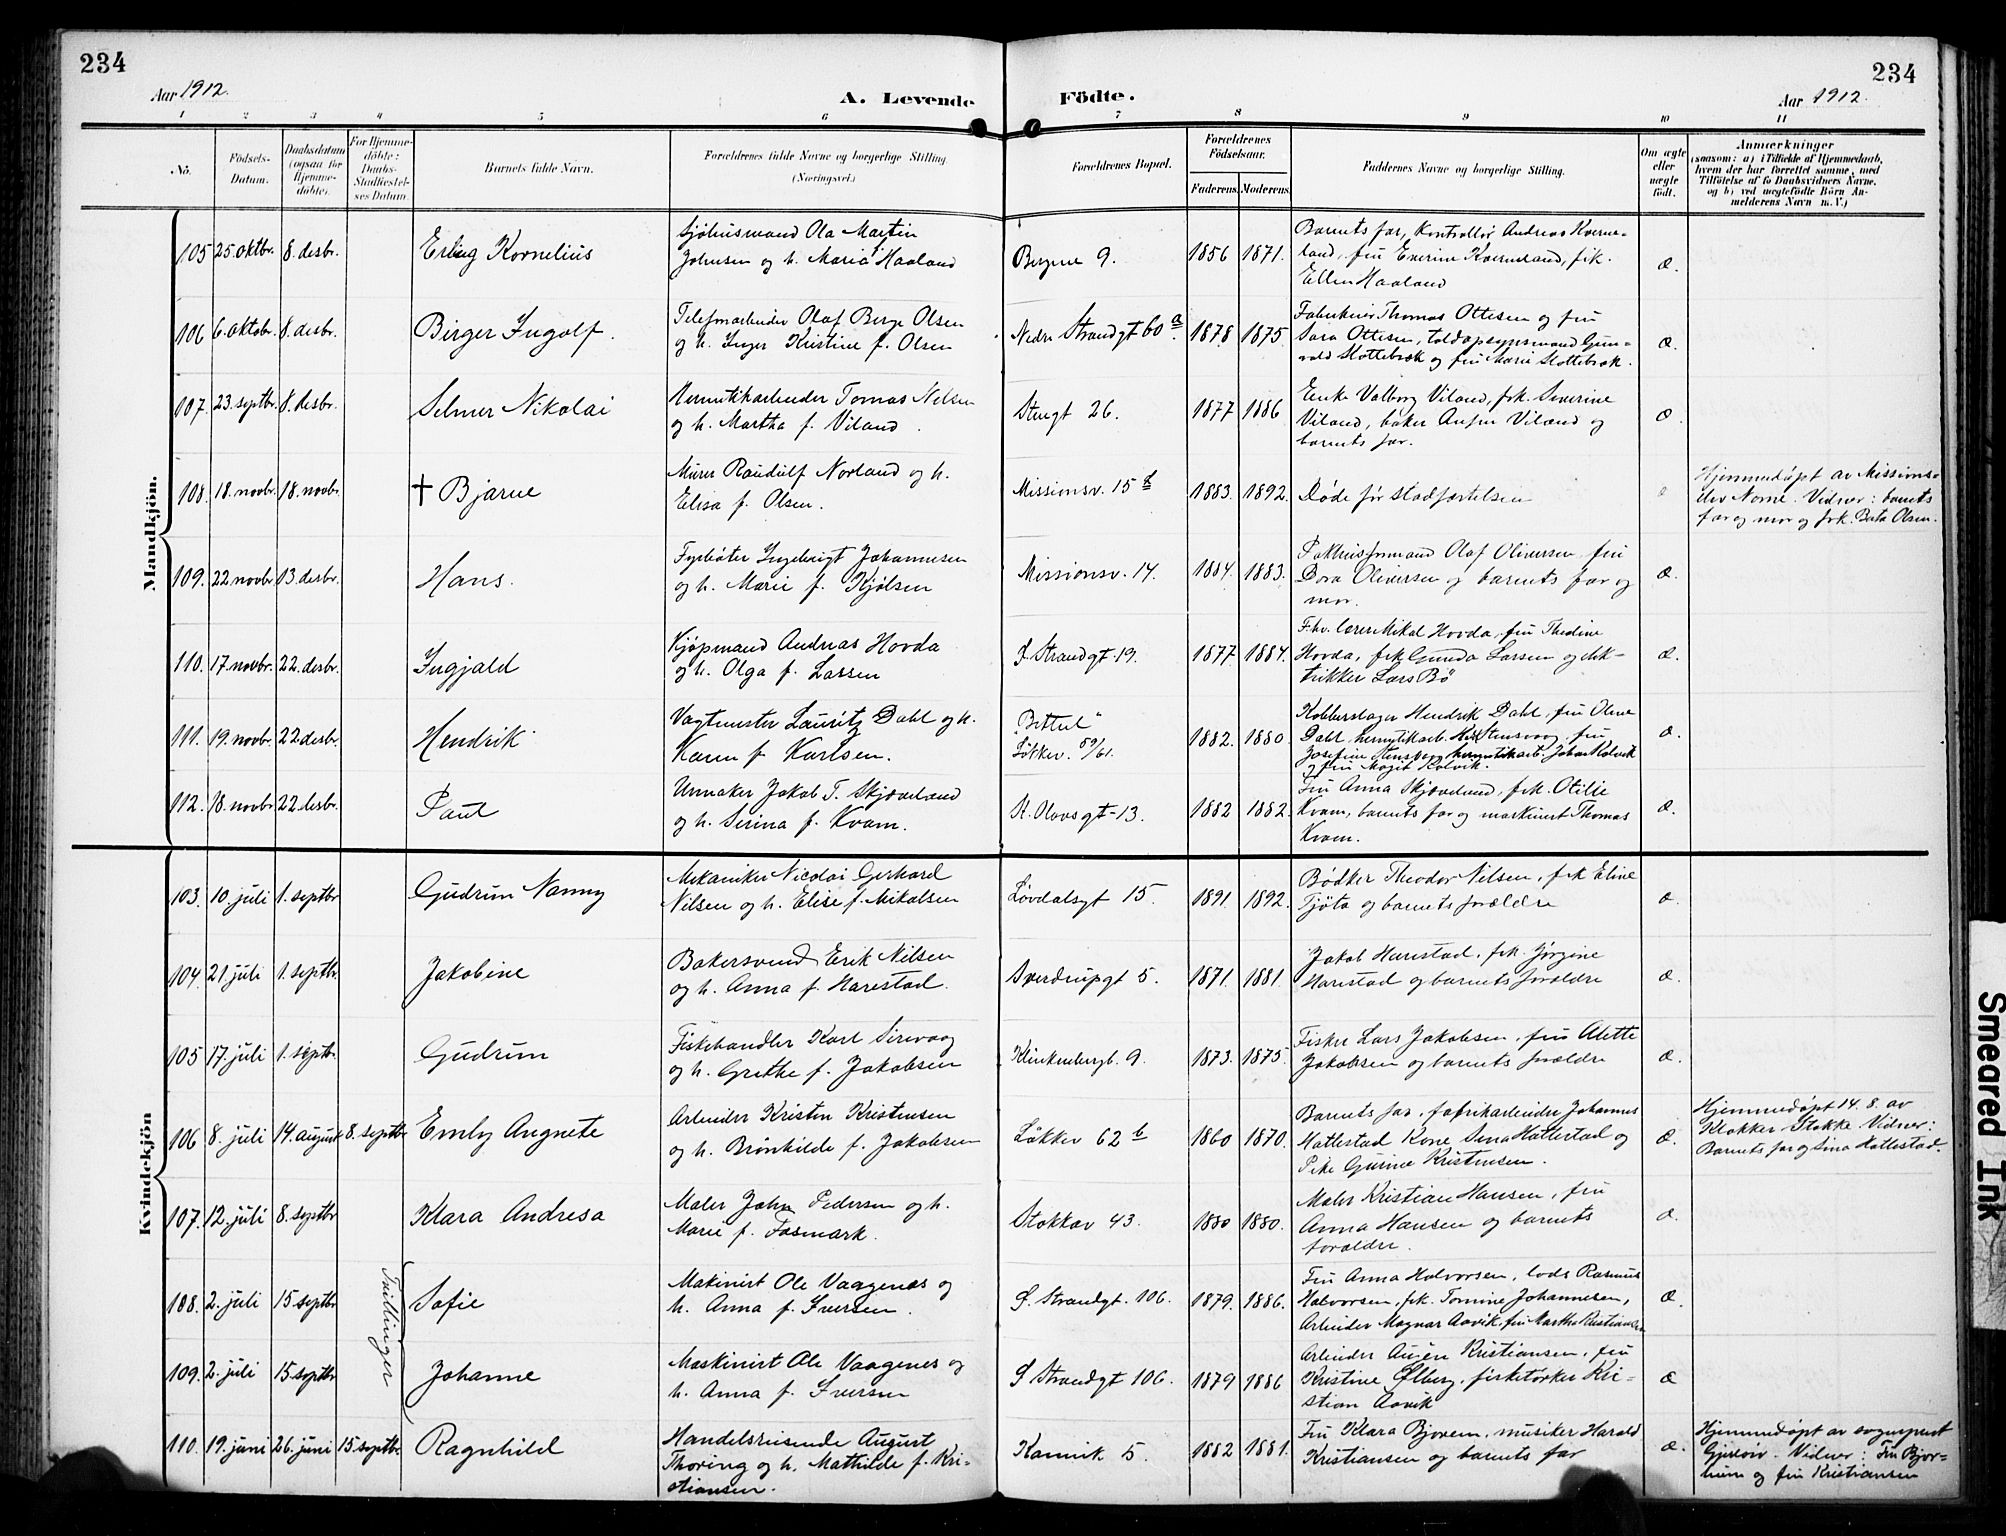 234
234
Aar 1912.
A. Levende
Födte.
Aar 1912.
1 2 3 4 5 6 7 8 9 10 11
Nö.
Födsels-
Datum.
Daabsdatum
(ogsaa for
Hjemme-
döbte).
For Hjemme-
döbte:
Daabs-
Stadfæstel-
ses Datum.
Barnets fulde Navn.
Forældrenes fulde Navne og borgerlige Stilling.
(Næringsvei.)
Forældrenes Bopæl.
Forældrenes
Födselsaar.
Faderens. Moderens.
Faddernes Navne og borgerlige Stilling.
Om ægte
eller
uægte
født.
Anmærkninger
(saasom: a) i Tilfælde af Hjemmedaab,
hvem der har forrettet samme, med
Tilföielse af to Daabsvidners Navne,
og b) ved uægtefödte Börn An-
melderens Navn m. V.)
Mandkjön.
105 25. oktbr. 8. desbr.
Erling Kornelius
Sjøhusmand Ola Martin
Johnsen og h. Maria Haaland
Bergene 9.
1856 1871.
Barnets far, kontrollør Andreas Kverne-
land, fru Everine Kverneland, frk.
Ellen Haaland
æ.
106 6. oktobr. 8. desbr.
Birger Ingolf.
Telefonarbeider Olaf Berge Olsen
og h. Inger Kristine f. Olsen
Nedre Strandgt 60 a
1878 1875.
Fabrikeier Thomas Ottesen og fru
Sara Ottesen, toldopsynsmand Gun-
vald Slottebrok og fru Marie Slottebrok.
æ.
107. 23. septbr. 8. desbr.
Selmer Nikolai
Hermetikarbeider Tomas Nelsen
og h. Martha f. Viland.
Stengt 26.
1877 1886
Enke Valborg Viland, frk. Severine
Viland, baker Anfin Viland og
barnets far.
æ
108. 18. novbr. 18. novbr.
† Bjarne
Murer Randulf Norland og h.
Elisa f. Olsen.
Missionsv. 15 b
1883. 1892.
Døde før stadfæstelsen
Hjemmedøpt av Missions-
elev Nome. Vidner: barnets
far og mor og frk. Berta Olsen.
109. 22. novbr 13. desbr.
Hans.
Fyrbøter Ingebrigt Johannesen
og h. Marie f. Kjølsen
Missionsv. 14.
1884. 1883.
Pakhusformand Olaf Oliversen, fru
Dora Oliversen og barnets far og
mor.
æ.
110. 17. novbr. 22. desbr.
Ingjald
Kjøpmand Andreas Hovda
og h. Olga f. Lassen
Ø. Strandgt. 19.
1877 1884.
Fhv. lærer Mikal Hovda, fru Thedine
Hovda, frk Gunda Larsen og elek-
trikker Lars Bø
æ.
111. 19. novbr. 22. desbr.
Hendrik.
Vagtmester Lauritz Dahl og h.
Karen f. Karlsen.
"Bettel"
Løkkev. 59/61.
1882. 1880.
Kobberslager Hendrik Dahl, fru Oline
Dahl, hermetikarb. Stensvog, fru
Josefine Stensvog, hermetikarb. Johan Kolvik
og fru Magit Kolvik.
æ.
112. 18. novbr 22. desbr.
Paul
Urmaker Jakob T. Skjæveland
og h. Serina f. Kvam.
St. Olavsgt-13.
1882 1882.
Fru Anna Skjæveland, frk. Otilie
Kvam, barnets far og maskinist Thomas
Kvam.
æ.
Kvindekjön
103. 10. juli 1. septbr
Gudrun Nanny
Mekaniker Nicolai Gerhard
Nilsen og h. Elise f. Mikalsen
Løvdalsgt 15.
1891. 1892.
Bødker Theodor Nilsen, frk Eline
Tjøta og barnets forældre
æ.
104. 21. juli 1. septbr
Jakobine
Bakersvend Erik Nilsen
og h. Anna f. Harestad.
Sverdrupgt 5.
1871. 1881.
Jakob Harestad, frk. Jørgine
Harestad og barnets forældre
æ.
105 17. juli 1. septbr.
Gudrun
Fiskehandler Karl Sirevaag
og h. Grethe f. Jakobsen
Klinkenbergt. 9.
1873. 1875.
Fisker Lars Jakobsen, fru Alette
Jakobsen og barnets forældre
æ.
106 8. juli 14. august 8. septbr
Emly Angnete
Arbeider Kristen Kristensen
og h. Brønhilde f. Jakobsen
Løkkev 62 b
1860 1870.
Barnets far, fabrikarbeider Johannes
Hatlestad Kone Sina Hatlestad og
Pike Gurine Kristensen.
æ.
Hjemmedøpt 14. 8. av
Klokker Stokke Vidner:
Barnets far og Sina Hatlestad.
107. 12. juli 8. septbr
Klara Andrea
Maler John Pedersen og h.
Marie f. Fosmark.
Stokkav 43.
1880 1880.
Maler Kristian Hansen, fru
Anna Hansen og barnets
forældre.
æ.
Tvillinger
108. 2. juli 15. septbr
Sofie
Makinist Ole Vaagenes og
h. Anna f. Iversen.
Ø. Strandgt. 106.
1879. 1886.
Fru Anna Halvorsen, lods Rasmus
Halvorsen, frk. Tomine Johannesen,
Arbeider Magnar Aavik, fru Martha Kristiansen
æ.
109. 2. juli 15. septbr
Johanne
Maskinist Ole Vaagenes og
h. Anna f. Iversen
Ø Strandgt 106.
1879 1886
Arbeider Kristiansen, fru
Kristine Ølberg, fisketørker Kri-
stian Aavik
æ
110. 19. juni 26. juni 15. septbr.
Ragnhild
Handelsreisende August
Thoring og h. Mathilde f. Kri-
stiansen.
Kannik 5.
1882 1881.
Fru Klara Bjoreim, musiker Harald
Kristiansen og barnets far
æ.
Hjemmedøpt av sogneprest
Gjerløv. Vidner: Fru Bjor-
heim og fru Kristiansen
Smeared Ink